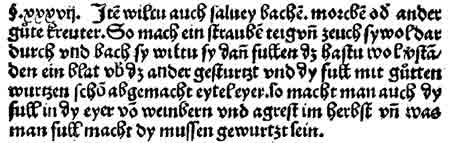 §.xxxvij. Jtē wiltu auch salueẏ bachē. morchē oď ander
gůte kreuter. So mach ein strauben teig vñ zeuch sy wol dar
durch vnd bach sy wiltu sy dañ fullen dz hastu wol v̄stā-
den ein blat vb̄ dz ander gesturtzt vnd dy full mit gütten
wurtzen schō abgemacht eytel eyer. so macht man auch dy
full in dy eyer vō weinbern vnd agrest im herbst vñ was
man full macht dy mussen gewurtzt sein.